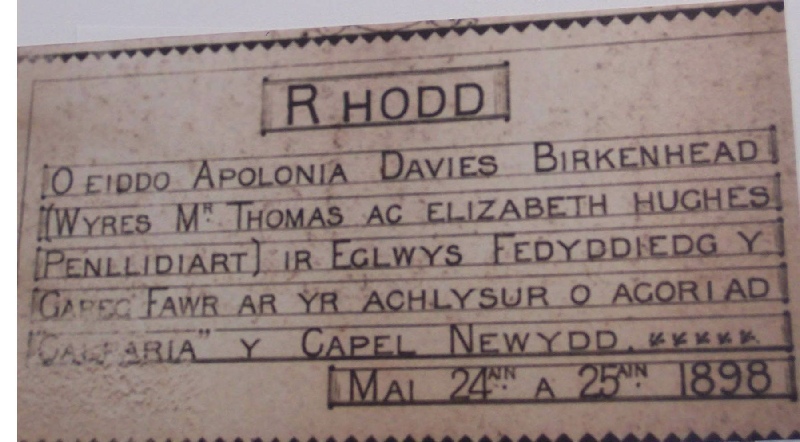 RHODD
O EIDDO APOLONIA DAVIES BIRKENHEAD
(WYRES Mʀ THOMAS AC ELIZABETH HUGHES
PENLLIDIART) IR EGLWYS FEDYDDIEDG Y
GAREG FAWR AR YR ACHLYSUR O AGORIAD
"CALFARIA" Y CAPEL NEWYDD.
MAI 24AIN A 25AIN 1898